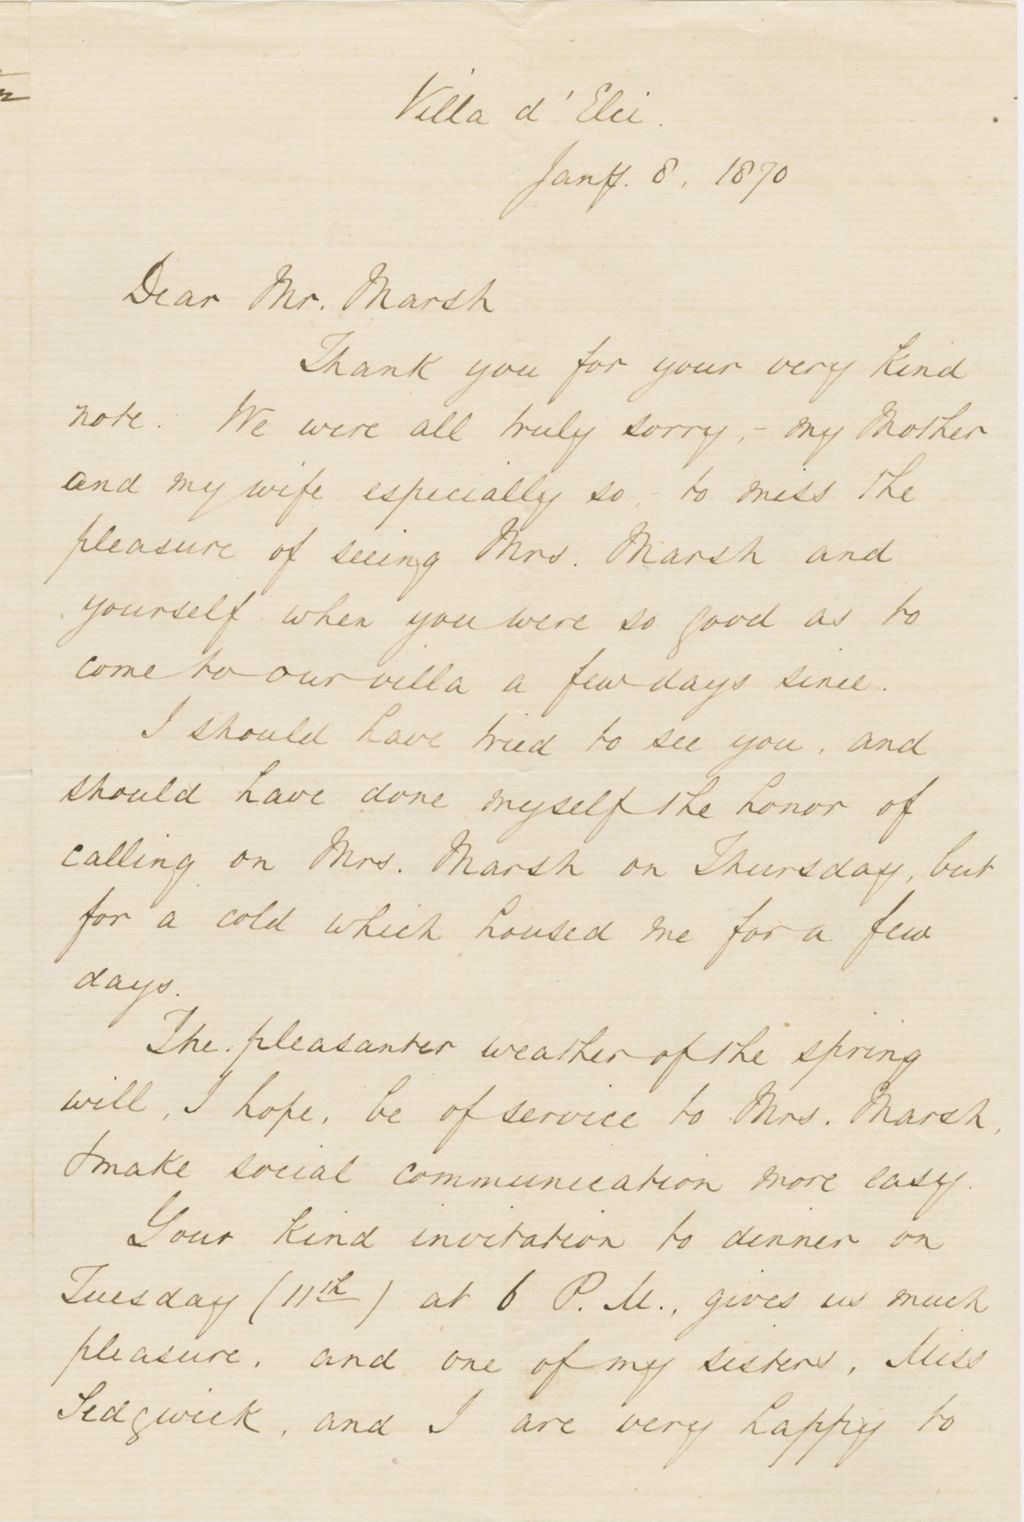 Villa d'Elci.
Jany. 8, 1870
Dear Mr. Marsh
Thank you for your very kind
note. We were all truly sorry, - my Mother
and my wife especially so, - to miss the
pleasure of seeing Mrs. Marsh and
yourself when you were so good as to
come to our villa a few days since.
I should have tried to see you, and
should have done myself the honor of
calling on Mrs. Marsh on Thursday, but
for a cold which housed me for a few
days.
The pleasanter weather of the spring
will, I hope, be of service to Mrs. Marsh,
& make social communication more easy.
Your kind invitation to dinner on
Tuesday (11th) at 6 P.M., gives us much
pleasure, and one of my sisters, Miss
Sedgwick, and I are very happy to